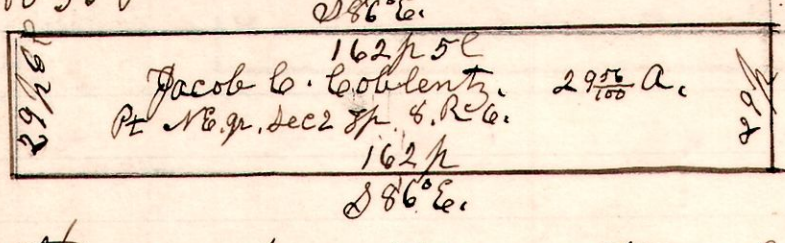 S 86° E.
162 p 5 l
Jacob C. Coblentz. 29 56/100 A.
Pt NE. qr. Sec 2 Tp 8. R 6.
162 p
S 86° E.